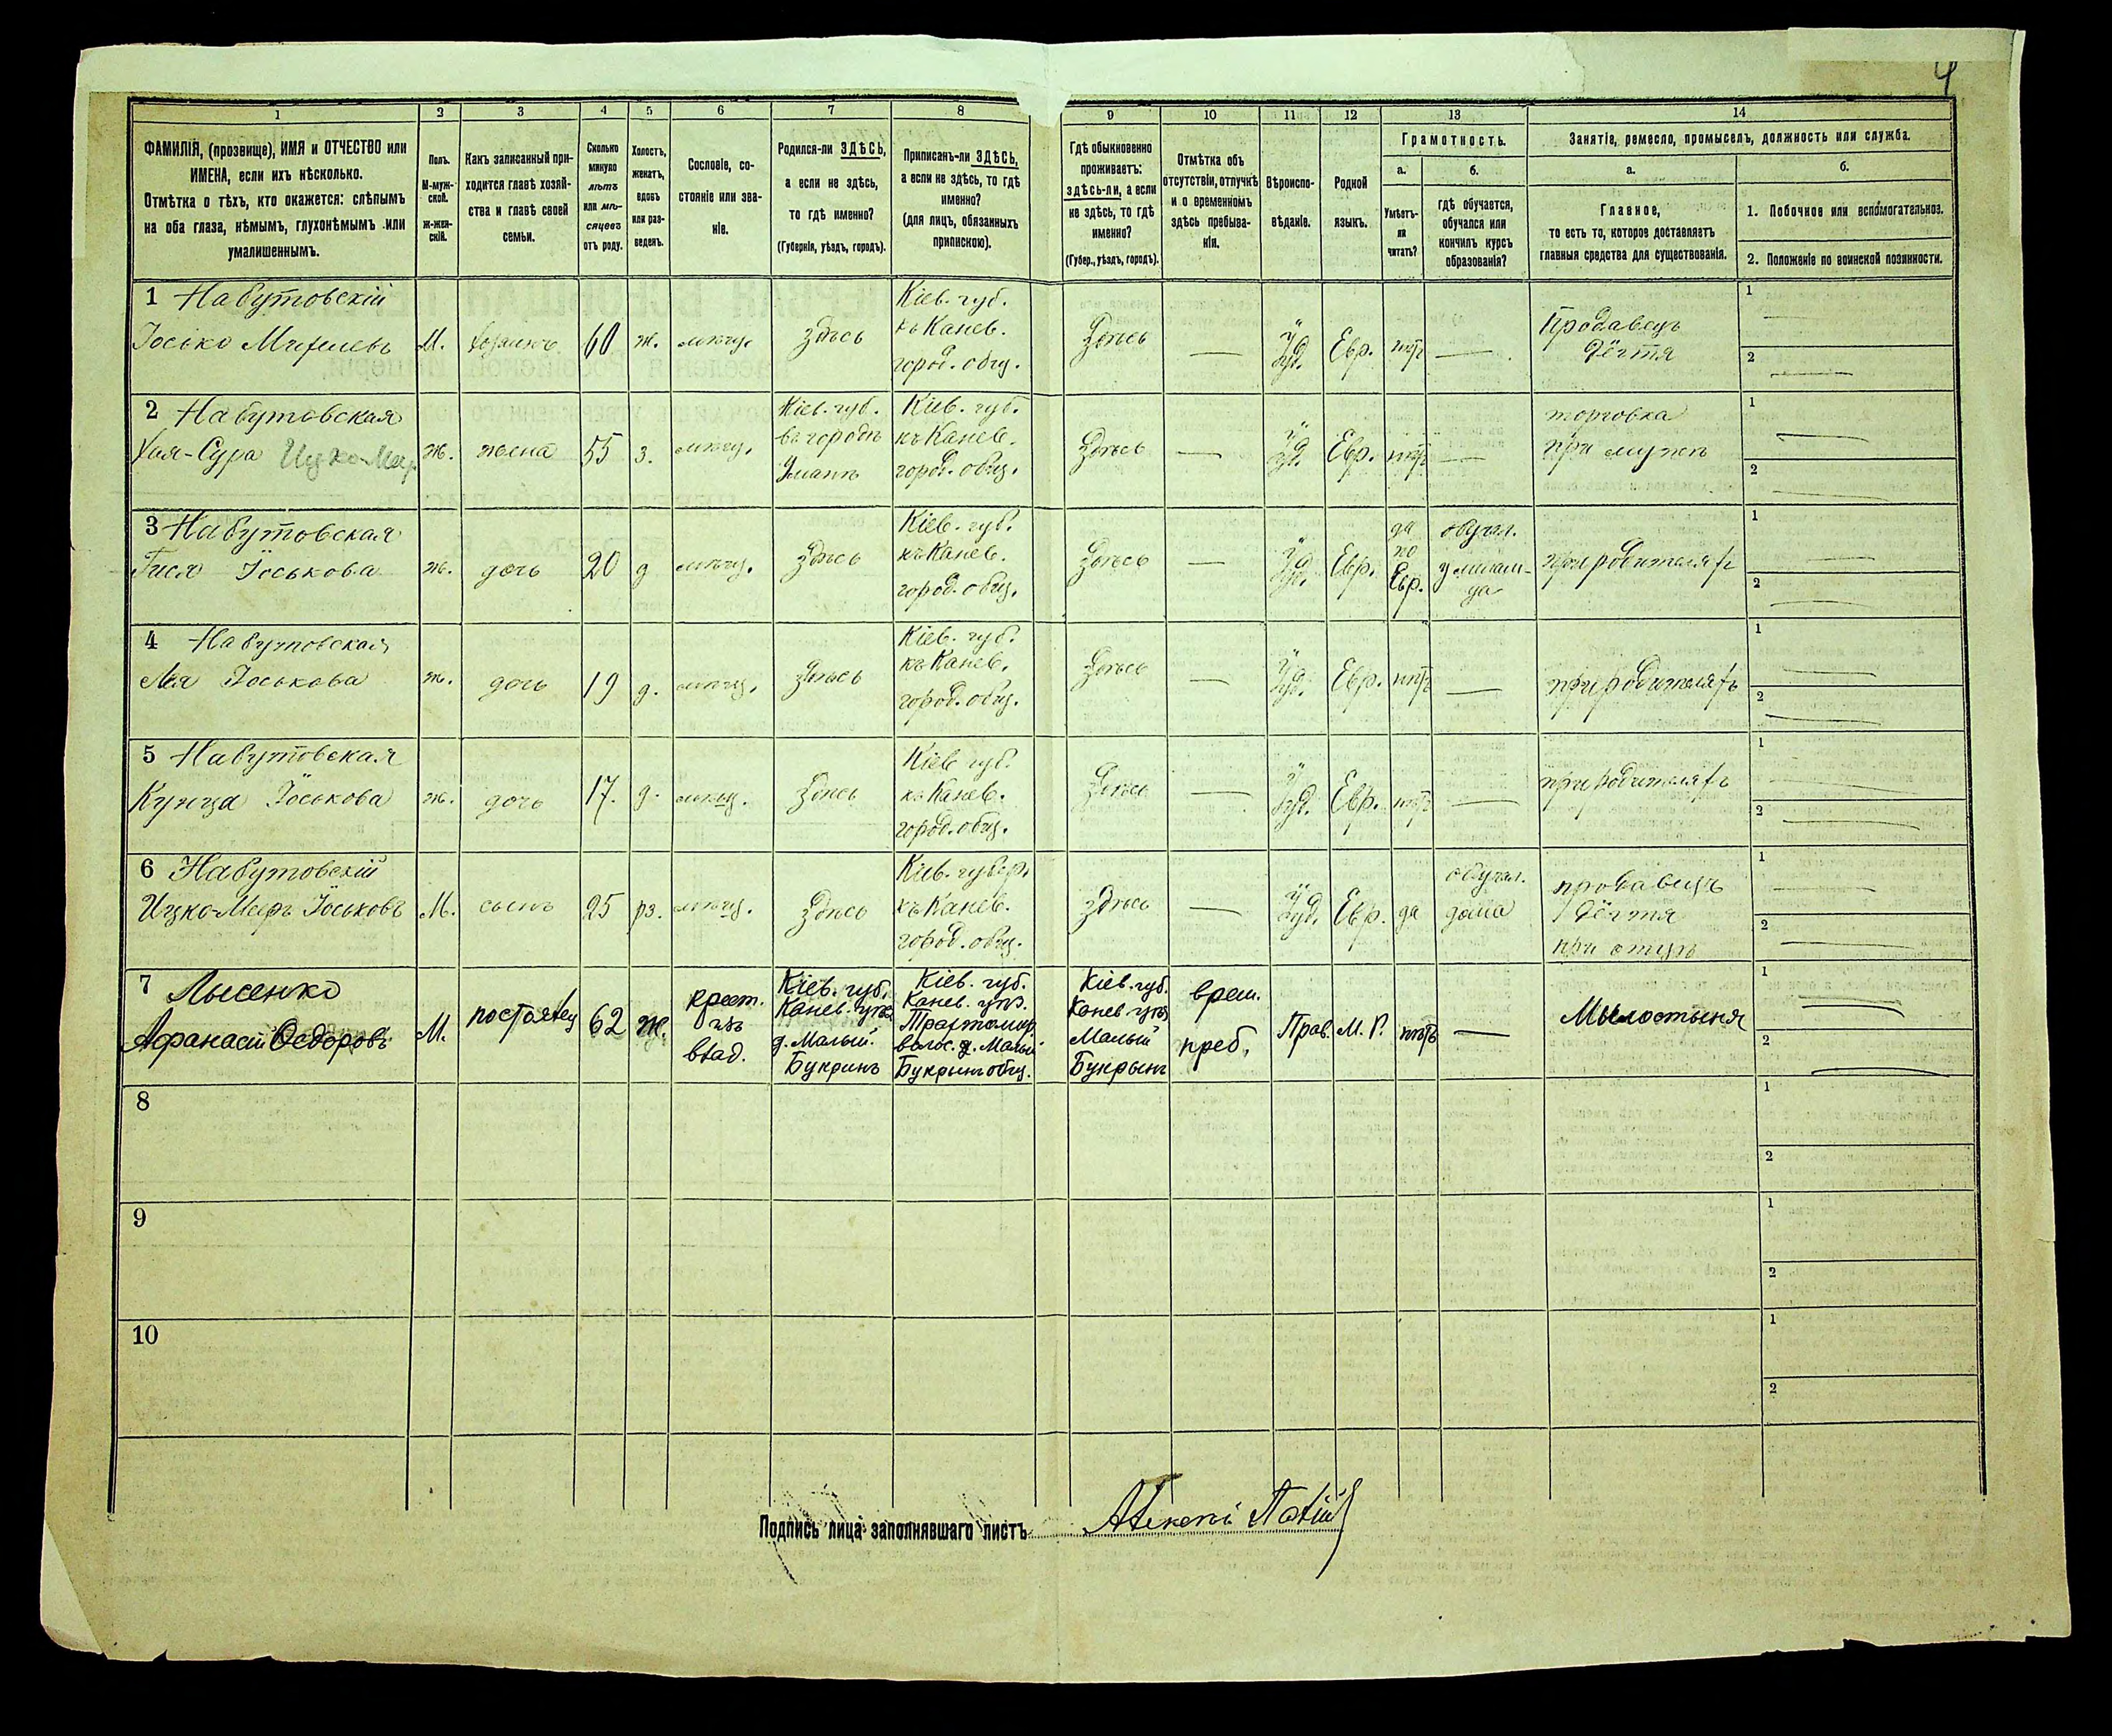 4
1
2
3
4
5
6
7
8
9
10
11
12
13
14
ФАМИЛІЯ, (прозвище), ИМЯ и ОТЧЕСТВО или
ИМЕНА, если ихъ нѣсколько.
Отмѣтка о тѣхъ, кто окажется: слѣпымъ
на оба глаза, нѣмымъ, глухонѣмымъ или
умалишеннымъ.
Полъ.
М-муж-
ской.
ж-жен-
скій.
Какъ записанный при-
ходится главѣ хозяй-
ства и главѣ своей
семьи.
Сколько
минуло
лѣтъ
или мѣ-
сяцевъ
отъ роду.
Холостъ,
женатъ,
вдовъ
или раз-
веденъ.
Сословіе, со-
стояніе или зва-
ніе.
Родился-ли ЗДѢСЬ,
а если не здѣсь,
то гдѣ именно?
(Губернія, уѣздъ, городъ).
Приписанъ-ли ЗДѢСЬ,
а если не здѣсь, то гдѣ
именно?
(для лицъ, обязанныхъ
припискою).
Гдѣ обыкновенно
проживаетъ:
здѣсь-ли, а если
не здѣсь, то гдѣ
именно?
(Губер., уѣздъ, городъ).
Отмѣтка объ
отсутствіи, отлучкѣ
и о временномъ
здѣсь пребыва-
ніи.
Вѣроиспо-
вѣданіе.
Родной
языкъ.
Грамотность.
а.
Умѣетъ-
ли
читать?
б.
гдѣ обучается,
обучался или
кончилъ курсъ
образованія?
Занятіе, ремесло, промыселъ, должность или служба.
а.
Главное,
то есть то, которое доставляетъ
главныя средства для существованія.
б.
1. Побочное или вспомогательное.
2. Положеніе по воинской повинности.
1 Набутовскій
Іосько Мееровъ М. хозяинъ 60 ж. мѣщ. здѣсь
Кіев. губ.
къ Канев.
город. общ.
Здѣсь — Іуд. Евр. нѣтъ —
Продавецъ
дёгтя
1
2
2 Набутовская
Хая-Сура Ицко-Меер. ж. жена 55 з. мѣщ.
Кіев. губ.
въ городѣ
Умань
Кіев. губ.
къ Канев.
город. общ.
Здѣсь — Іуд. Евр. нѣтъ —
торговка
при мужѣ
1
2
3 Набутовская
Гися Іоськова ж. дочь 20 д мѣщ. здѣсь
Кіев. губ.
къ Канев.
город. общ.
Здѣсь — Іуд. Евр.
да
по
Евр.
обучал.
у мелам-
да
при родителяхъ
1
2
4 Набутовская
Лея Іоськова ж. дочь 19 д. мѣщ. здѣсь
Кіев. губ.
къ Канев.
город. общ.
Здѣсь — Іуд. Евр. нѣтъ —
при родителяхъ
1
2
5 Набутовская
Кунца Іоськова ж. дочь 17. д. мѣщ. здѣсь
Кіев губ.
къ Канев.
город. общ.
Здѣсь — Іуд. Евр. нѣтъ —
при родителяхъ
1
2
6 Набутовскій
Ицко-Мееръ Іоськовъ М. сынъ 25 рз. мѣщ. здѣсь
Кіев. губер.
къ Канев.
город. общ.
здѣсь — Іуд. Евр. да
обучал.
дома
продавецъ
дёгтя
при отцѣ
1
2
7 Лысенко
Афанасій Ѳедоровъ М. постоялец 62 ж.
крест.
изъ
влад.
Кіев. губ.
Канев. уѣз.
д. Малый
Букринъ
Кіев. губ.
Канев. уѣз.
Трахтомир.
волос. д. Малый
Букрынъ общ.
Кіев. губ.
Канев. уѣз.
Малый
Букрынъ
врем.
преб.
Прав. М. Р. нѣтъ —
Мылостыня
1
2
8
1
2
9
1
2
10
1
2
Подпись лица заполнявшаго листъ